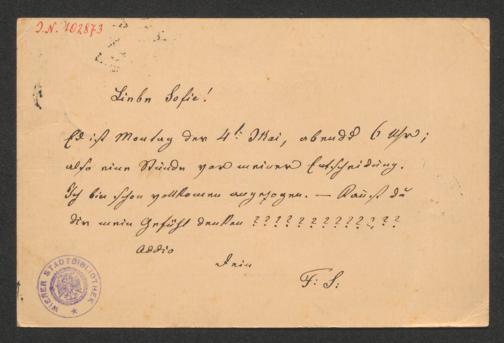 I.N. 102873
Liebe Sofie!
Es ist Montag der 4t. Mai, abends 6 Uhr;
also eine Stunde vor meiner Entscheidung.
Ich bin schon vollkomen angezogen. — Kannst du
dir mein Gefühl denken ? ? ? ? ? ? ? ? ? ? ? ? ?
Addio
Dein
F: S:
WIENER STADTBIBLIOTHEK